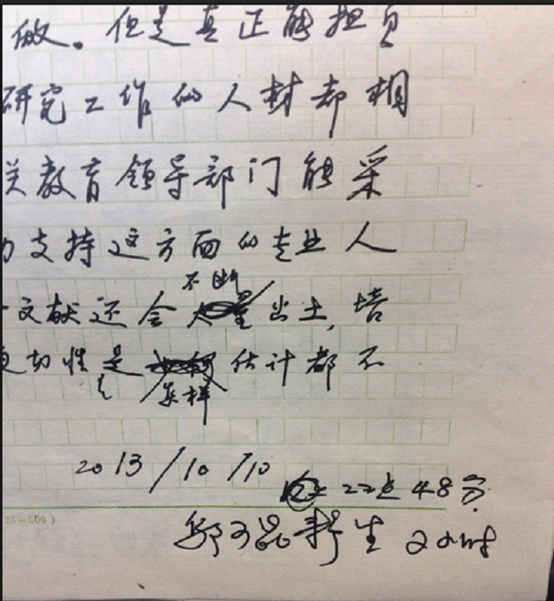 做。但是真正能担负
研究工作的人材却相
关教育领导部门能采
力支持这方面的专业人
不断
文献还会出土,培
更切性是估计都不
怎样
2013/10/10
22点48分
25=500)
生 2小时